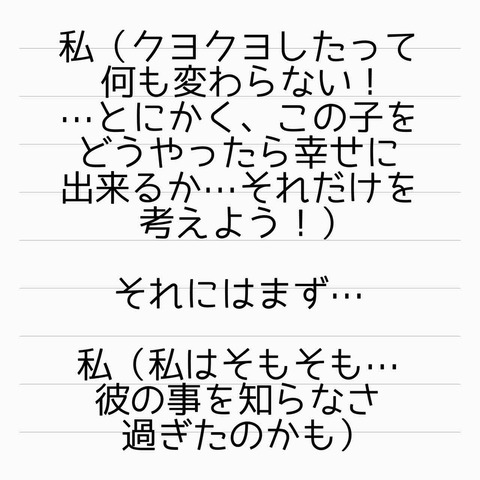 私（クヨクヨしたって
何も変わらない！
…とにかく、この子を
どうやったら幸せに
出来るか…それだけを
考えよう！）
それにはまず…
私（私はそもそも…
彼の事を知らなさ
過ぎたのかも）